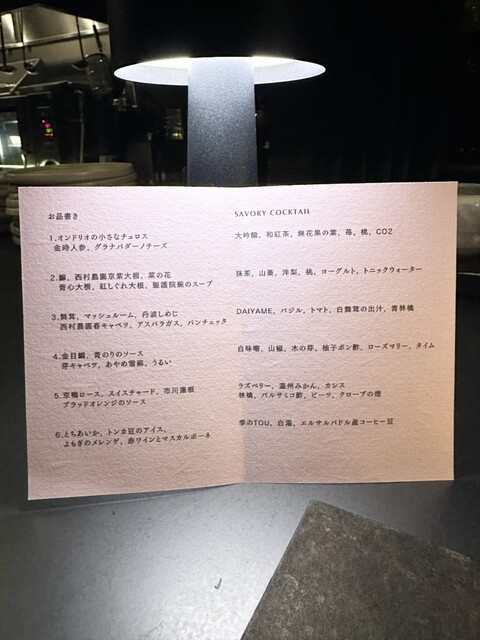 お品書き
1.オンドリオの小さなチュロス
金時人参、グラナパダーノチーズ
2.鰤、西村農園京紫大根、菜の花
青心大根、紅しぐれ大根、聖護院蕪のスープ
3.舞茸、マッシュルーム、丹波しめじ
西村農園春キャベツ、アスパラガス、パンチェッタ
4.金目鯛、青のりのソース
芽キャベツ、あやめ雪蕪、うるい
5.京鴨ロース、スイスチャード、市川蓮根
ブラッドオレンジのソース
6.とちあいか、トンカ豆のアイス、
よもぎのメレンゲ、赤ワインとマスカルポーネ
SAVORY COCKTAIL
大吟醸、和紅茶、無花果の葉、苺、桃、CO2
抹茶、山葵、洋梨、桃、ヨーグルト、トニックウォーター
DAIYAME、バジル、トマト、白舞茸の出汁、青林檎
白味噌、山椒、木の芽、柚子ポン酢、ローズマリー、タイム
ラズベリー、温州みかん、カシス
林檎、バルサミコ酢、ビーツ、クローブの煙
季のTOU、白海、エルサルバドル産コーヒー豆